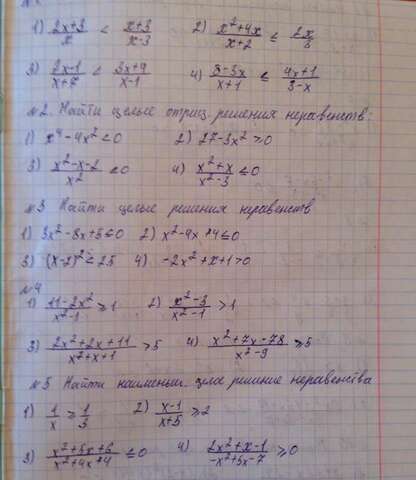 1) (2x+3)/x < (x+3)/(x-3) 2) (x²+4x)/(x+2) ≤ 2x/3
3) (2x-1)/(x+7) < (3x+9)/(x-1) 4) (3-5x)/(x+1) ≤ (4x+1)/(3-x)
№2. Найти целые отриц. решения неравенств:
1) x⁴-4x²<0 2) 27-3x²>0
3) (x²-x-2)/x² <0 4) (x²+x)/(x²-3) ≤0
№3 Найти целые решения неравенств
1) 3x²-8x+5≤0 2) x²-4x+4≤0
3) (x-2)²≤25 4) -2x²+x+1>0
№4
1) (11-2x²)/(x²-1) ≥1 2) (x²-3)/(x²-1) >1
3) (2x²+2x+11)/(x²+x+1) >5 4) (x²+7x-78)/(x²-9) ≥5
№5 Найти наименьш. целое решение неравенства
1) 1/x ≥ 1/3 2) (x-1)/(x+5) ≥2
3) (x²+5x+6)/(x²+4x+4) ≤0 4) (2x²+x-1)/(-x²+5x-7) ≥0